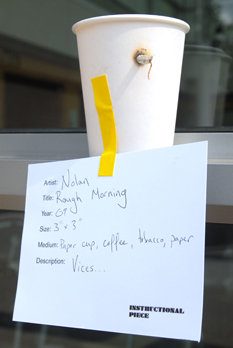 Artist: Nolan
Title: Rough Morning
Year: 09
Size: 3" x 3"
Medium: Paper cup, coffee, tobacco, paper
Description: Vices...
INSTRUCTIONAL
PIECE